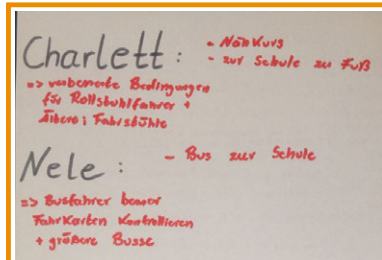 Charlett: - Nähkurs
- zur Schule zu Fuß
=> verbesserte Bedingungen
für Rollstuhlfahrer +
Ältere; Fahrstühle
Nele: - Bus zur Schule
=> Busfahrer besser
Fahrkarten Kontrollieren
+ größere Busse